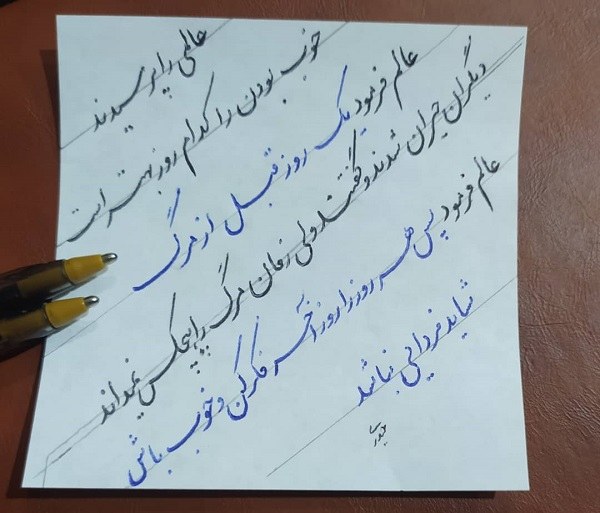 عالمی را پرسیدند
خوب بودن را کدام روز بهتر است
عالم فرمود یک روز قبل از مرگ
دیگران حیران شدند و گفتند ولی زمان مرگ را هیچکس نمیداند
عالم فرمود پس هر روز را روز آخر فکر کن و خوب باش
شاید فردایی نباشد